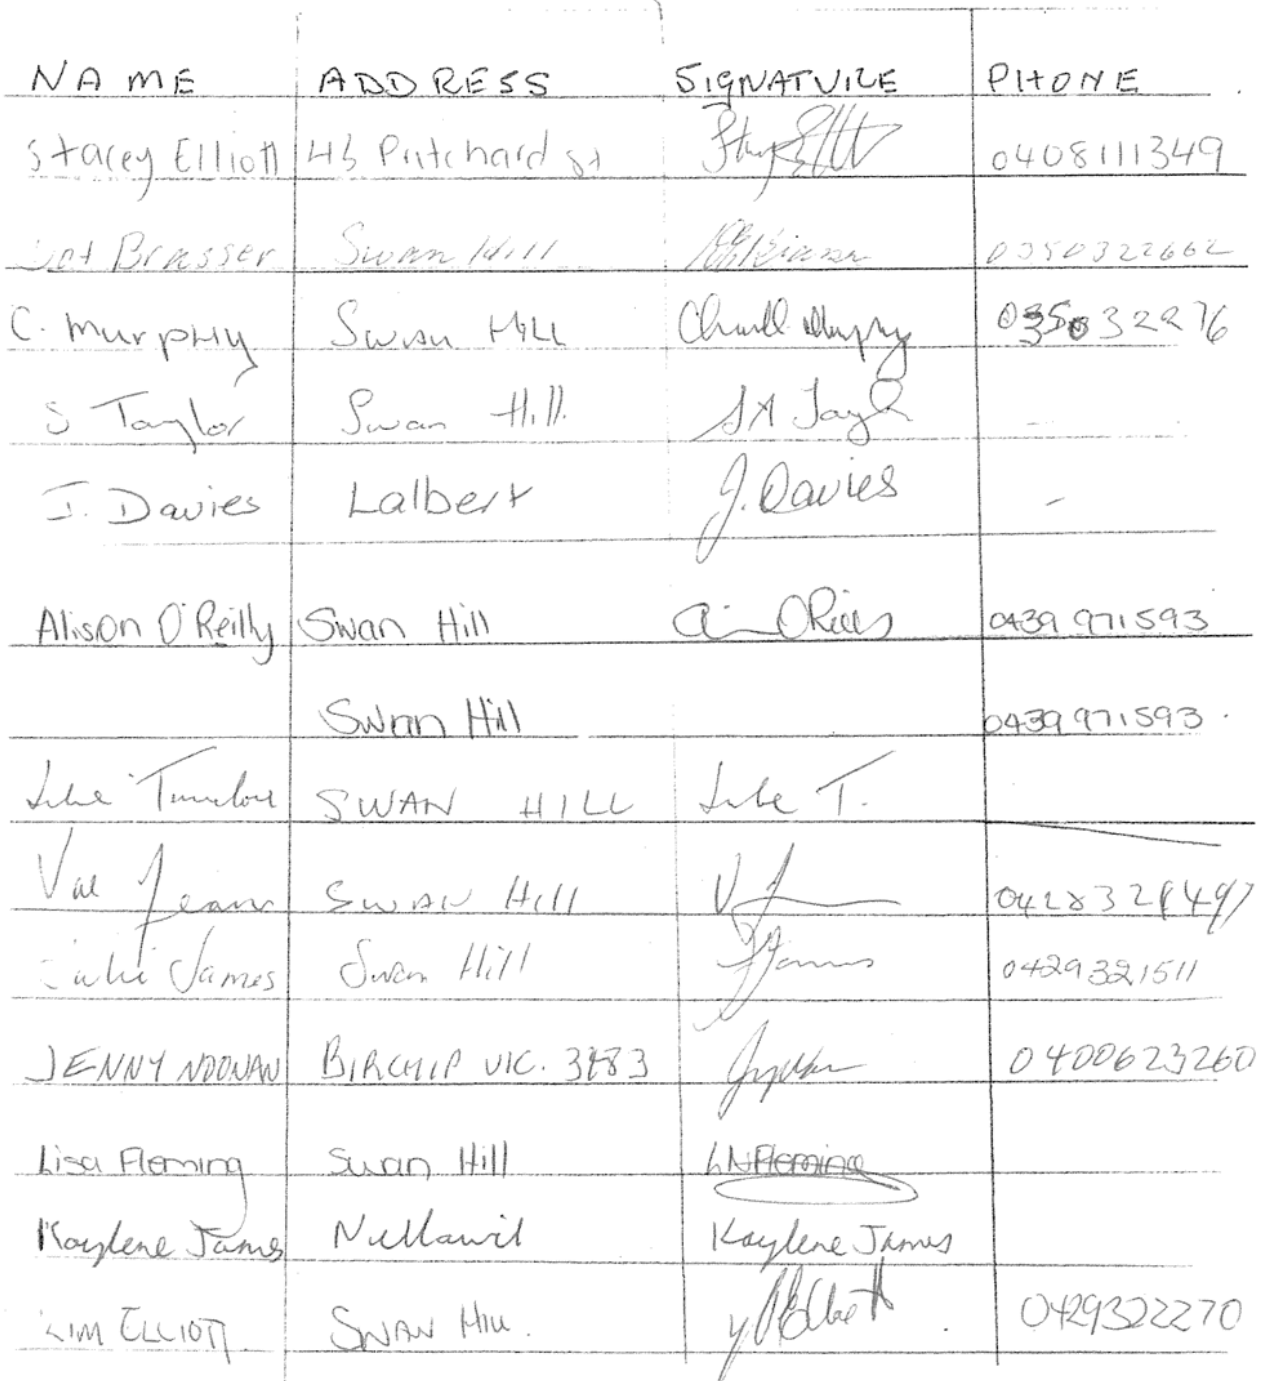 NAME ADDRESS SIGNATURE PHONE
Stacey Elliott Pritchard st 0408111349
Dot Brasser Swan Hill 0350322662
C. Murphy Swan Hill Murphy 035032276
S Taylor Swan Hill. S A Taylor -
J. Davies Lalbert J. Davies -
Alison O'Reilly Swan Hill O'Reilly 0439 971593
Swan Hill 0439 971593.
Luke SWAN HILL Luke T.
Val Jeans Swan Hill V J
Julie James Swan Hill J James 0429321511
JENNY NOONAN BIRCHIP VIC. 3483 0400623260
Lisa Fleming Swan Hill L N Fleming
Kaylene James Nullawil Kaylene James
KIM ELLIOTT SWAN HILL. Elliott 0429322270